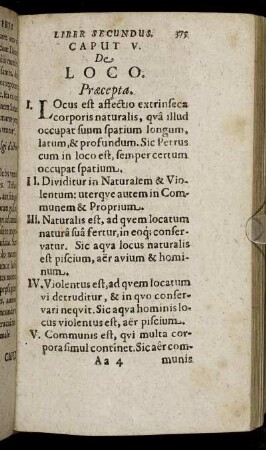 LIBER SECUNDUS. 375
CAPUT V.
De
LOCO.
Præcepta.
I. LOcus est affectio extrinseca
corporis naturalis, qvâ illud
occupat suum spatium longum,
latum, & profundum. Sic Petrus
cum in loco est, semper certum
occupat spatium.
II. Dividitur in Naturalem & Vio-
lentum; uterqve autem in Com-
munem & Proprium.
III. Naturalis est, ad qvem locatum
naturâ suâ fertur, in eoq; conser-
vatur. Sic aqva locus naturalis
est piscium, aër avium & homi-
num.
IV. Violentus est, ad qvem locatum
vi detruditur, & in qvo conser-
vari neqvit. Sic aqva hominis lo-
cus violentus est, aër piscium.
V. Communis est, qvi multa cor-
pora simul continet. Sic aër com-
Aa 4 munis